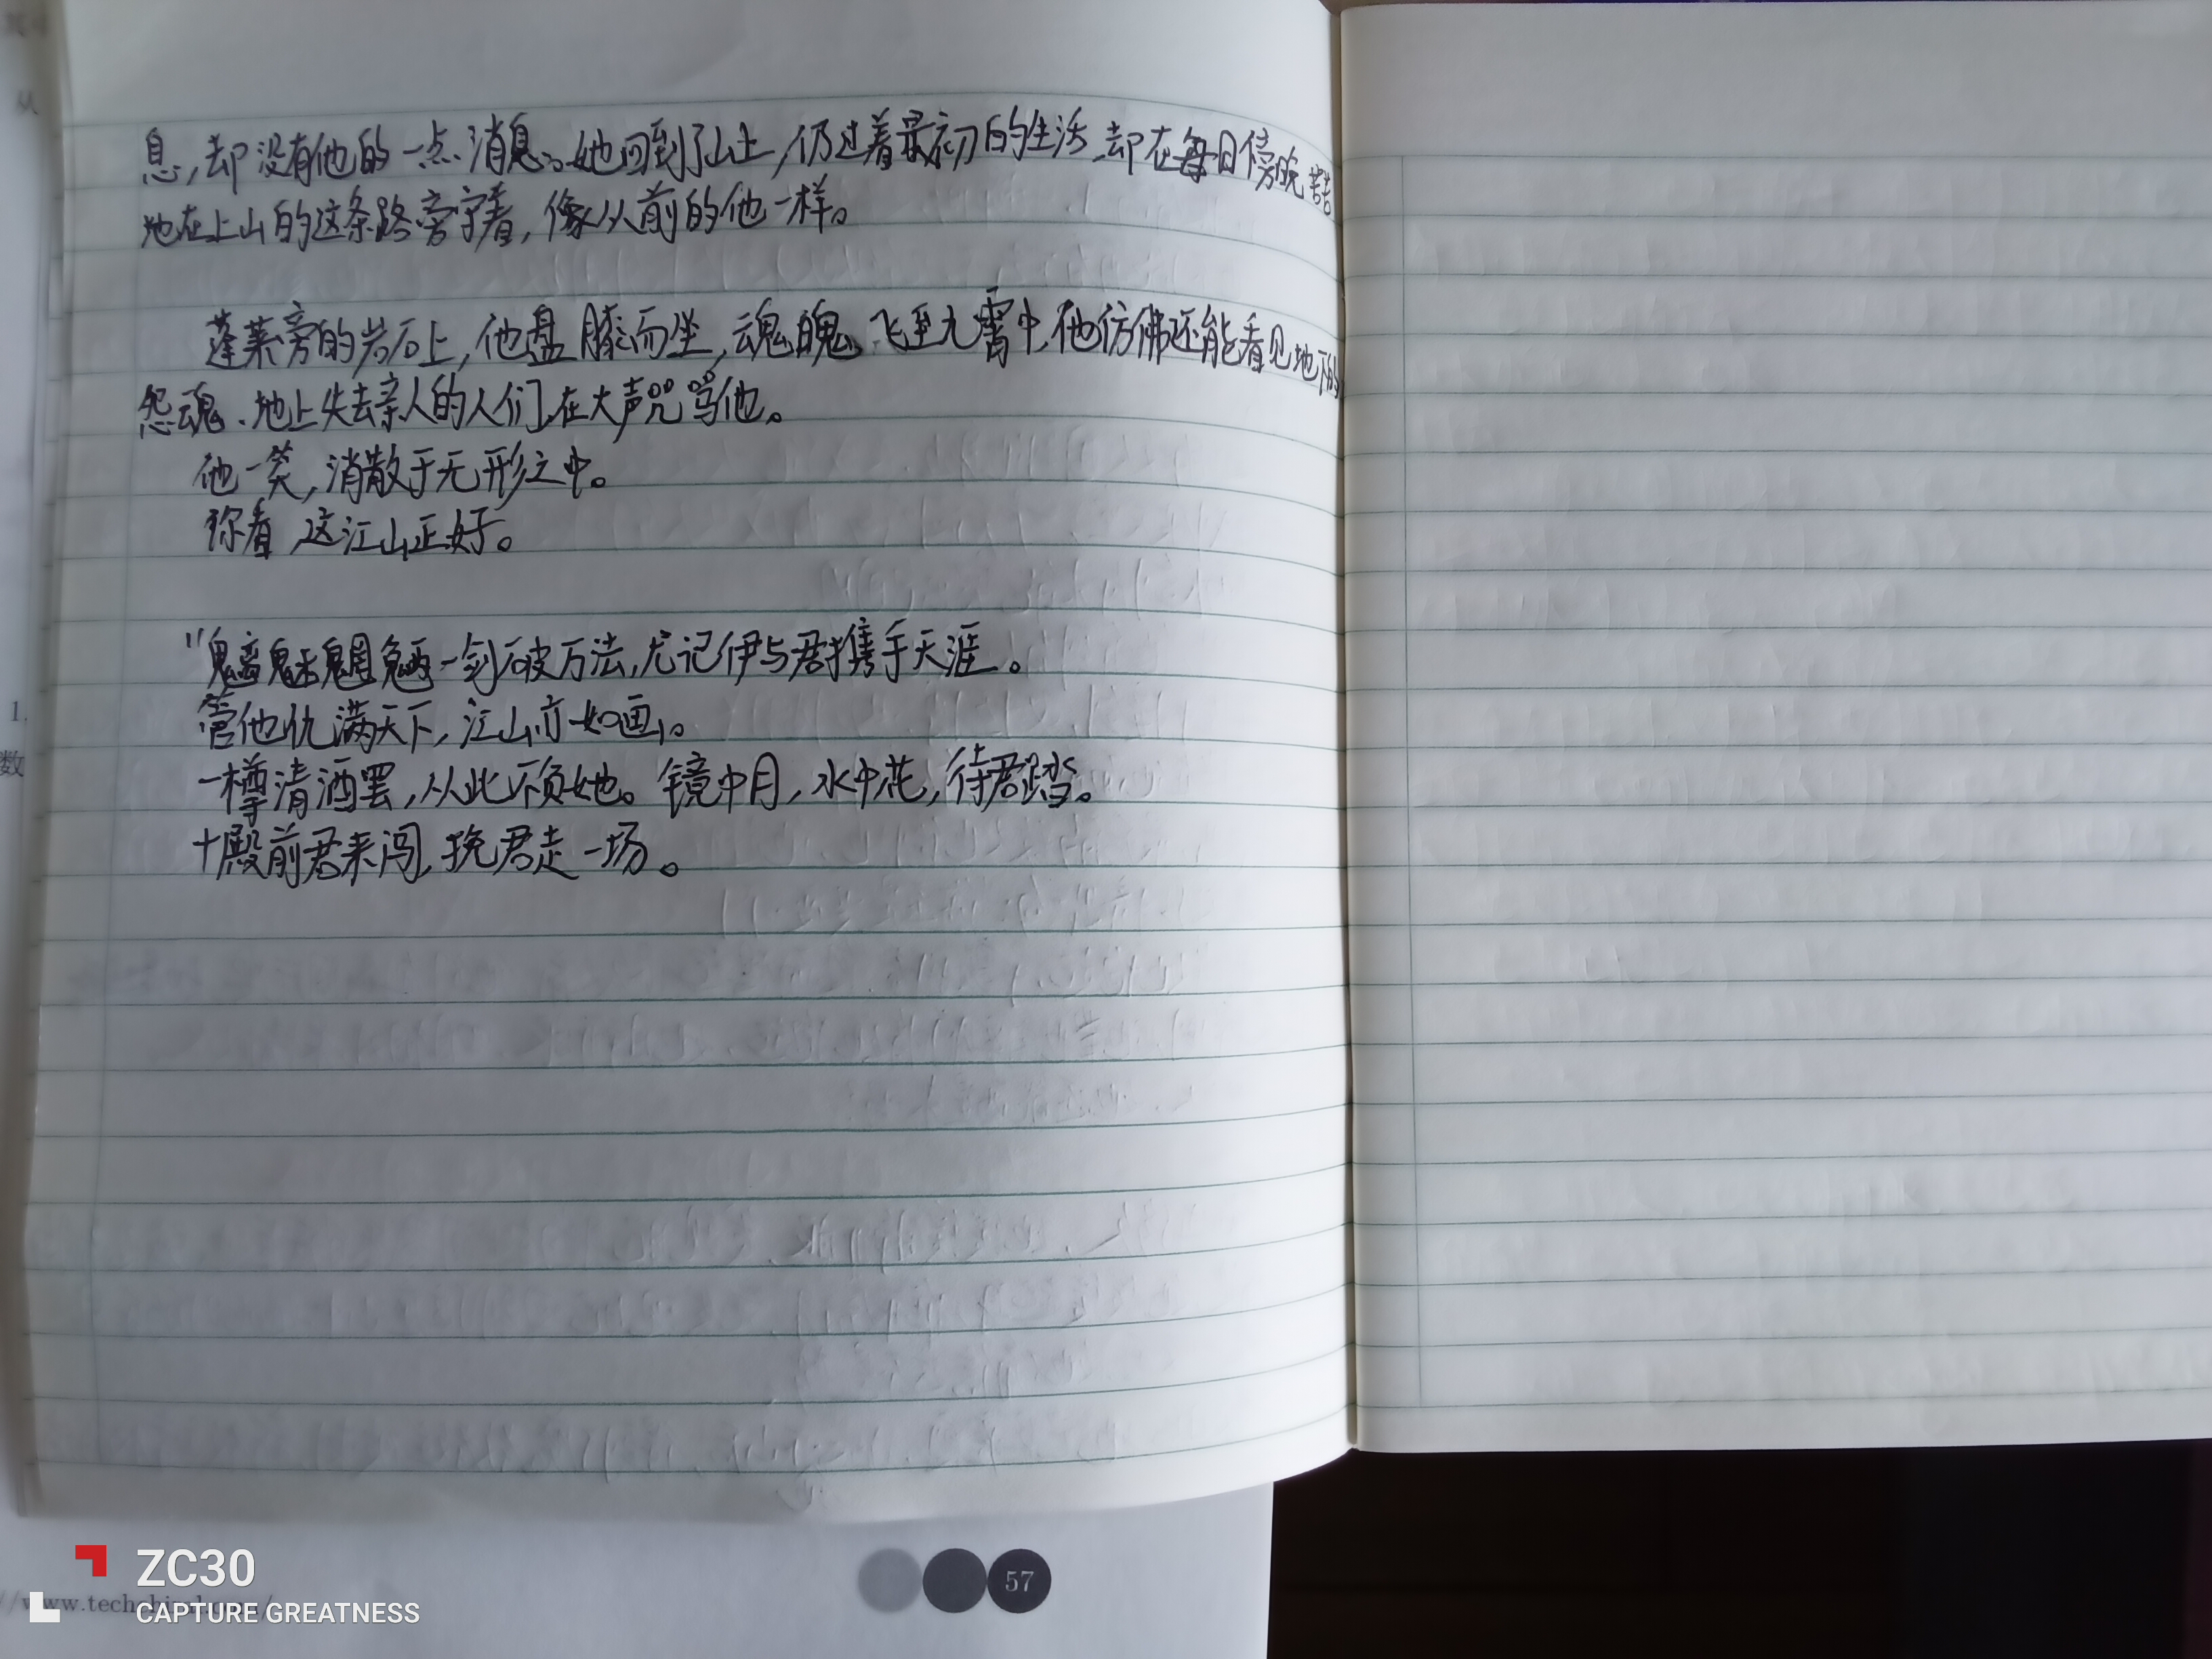 息,却没有他的一点消息。她回到了山上,仍过着最初的生活,却在每日傍晚苦苦
地在上山的这条路旁守着,像从前的他一样。
蓬莱旁的岩石上,他盘膝而坐,魂魄飞至九霄中,他仿佛还能看见地下的
怨魂、地上失去亲人的人们在大声咒骂他。
他一笑,消散于无形之中。
你看,这江山正好。
"魑魅魍魉一剑破万法,尤记伊与君携手天涯。
管他仇满天下,江山亦如画。
一樽清酒罢,从此不负她。镜中月,水中花,待君踏。
十殿前君来闯,挽君走一场。
从
1.
数
57
ZC30
CAPTURE GREATNESS